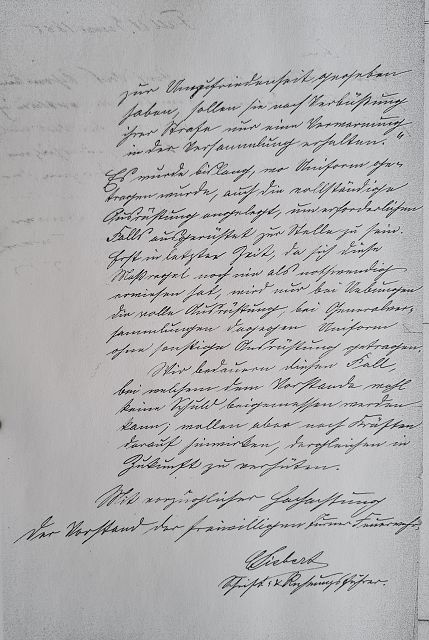 zur Unzufriedenheit gegeben
haben, sollen sie nach Verbüßung
ihrer Strafe nur eine Verwarnung
in der Versammlung erhalten."
Es wurde bislang, wo Uniform ge-
tragen wurde, auch die vollständige
Ausrüstung angelegt, um erforderlichen
Falls ausgerüstet zur Stelle zu sein.
Erst in letzter Zeit, da sich diese
Maßregel noch nie als nothwendig
erwiesen hat, wird nur bei Uebungen
die volle Ausrüstung, bei Generalver-
sammlungen dagegen Uniform
ohne sonstige Ausrüstung getragen.
Wir bedauern diesen Fall,
bei welchem dem Vorstande wohl
keine Schuld beigemessen werden
kann, wollen aber nach Kräften
darauf hinwirken, dergleichen in
Zukunft zu verhüten.
Mit vorzüglicher Hochachtung
Der Vorstand der freiwilligen Turner Feuerwehr.
Siebert
Schrift- & Rechnungsführer.